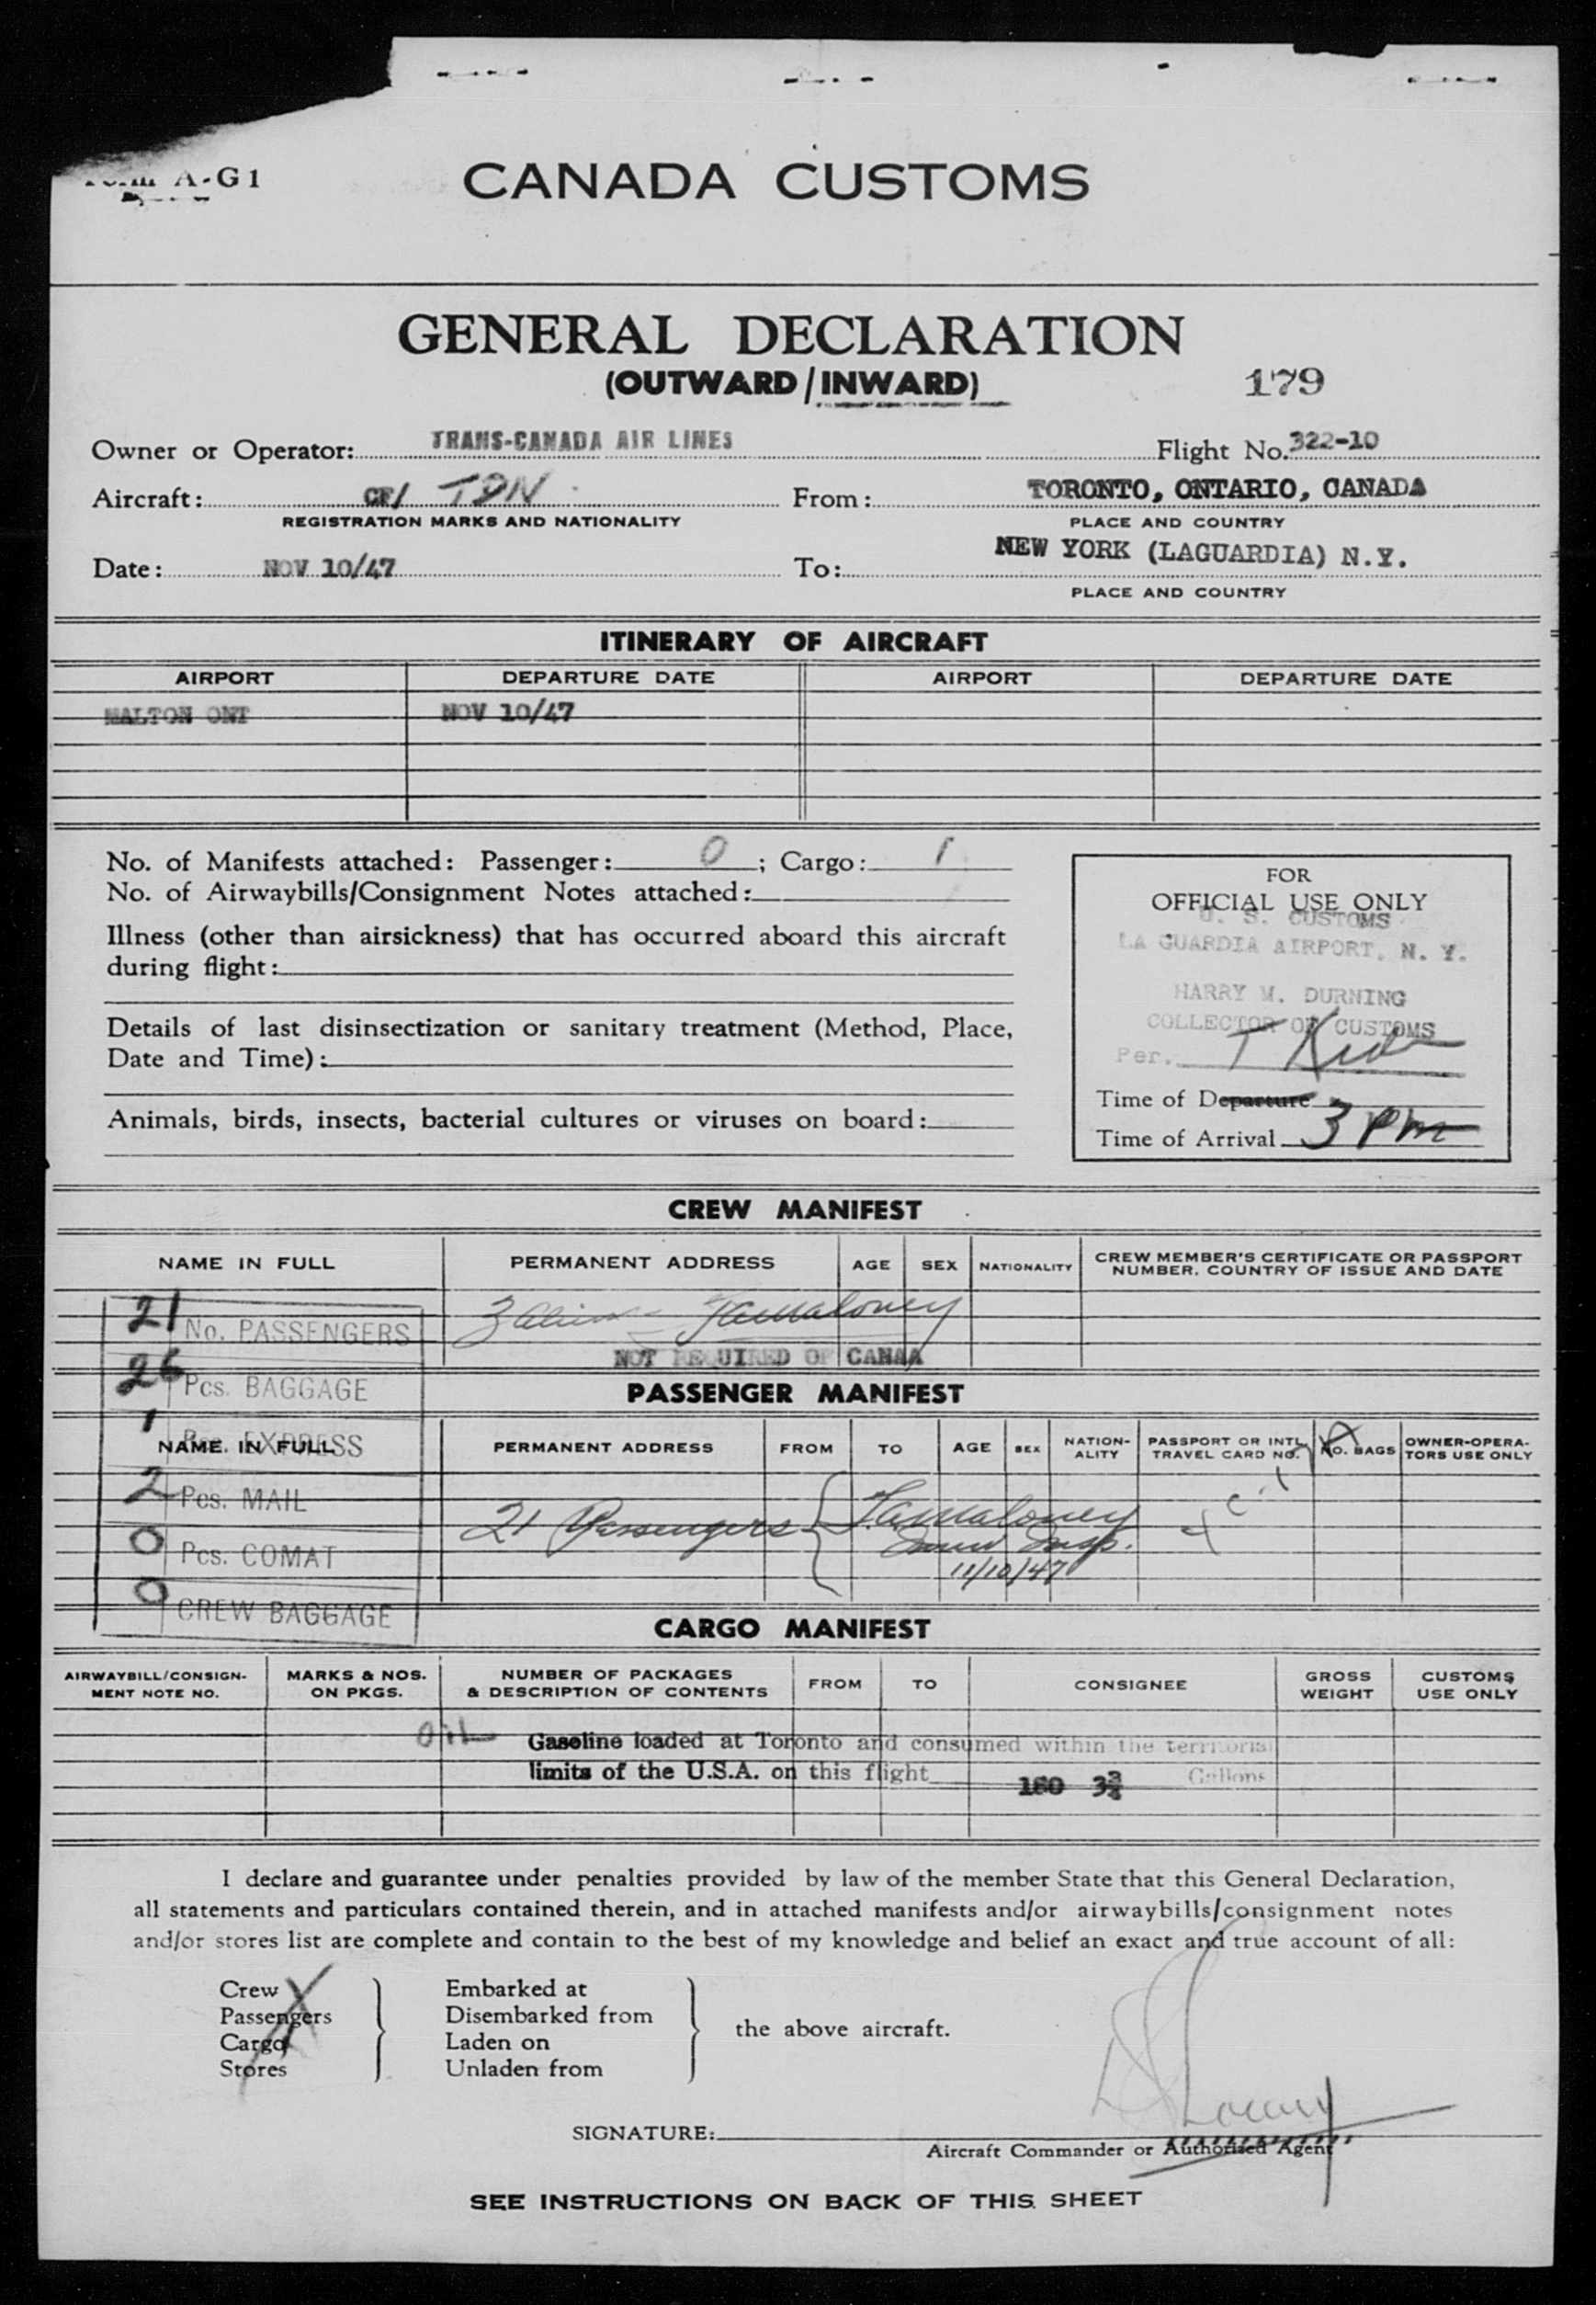 A-G1
CANADA CUSTOMS
GENERAL DECLARATION
(OUTWARD/INWARD)
179
Owner or Operator: TRANS-CANADA AIR LINES Flight No. 322-10
Aircraft: CF/ TDN From: TORONTO, ONTARIO, CANADA
REGISTRATION MARKS AND NATIONALITY PLACE AND COUNTRY
Date: NOV 10/47 To: NEW YORK (LAGUARDIA) N.Y.
PLACE AND COUNTRY
ITINERARY OF AIRCRAFT
AIRPORT DEPARTURE DATE AIRPORT DEPARTURE DATE
MALTON ONT NOV 10/47
No. of Manifests attached: Passenger: 0 ; Cargo: 1
No. of Airwaybills/Consignment Notes attached:
Illness (other than airsickness) that has occurred aboard this aircraft
during flight:
Details of last disinsectization or sanitary treatment (Method, Place,
Date and Time):
Animals, birds, insects, bacterial cultures or viruses on board:
FOR
OFFICIAL USE ONLY
U. S. CUSTOMS
LA GUARDIA AIRPORT, N. Y.
HARRY M. DURNING
COLLECTOR OF CUSTOMS
Per.
Time of Departure
Time of Arrival 3 PM
CREW MANIFEST
NAME IN FULL PERMANENT ADDRESS AGE SEX NATIONALITY CREW MEMBER'S CERTIFICATE OR PASSPORT
NUMBER, COUNTRY OF ISSUE AND DATE
21 No. PASSENGERS
3 Maloney
NOT REQUIRED OF CANAA
26 Pcs. BAGGAGE
PASSENGER MANIFEST
1 Pcs. EXPRESS
NAME IN FULL PERMANENT ADDRESS FROM TO AGE SEX NATION-
ALITY PASSPORT OR INTL.
TRAVEL CARD NO. NO. BAGS OWNER-OPERA-
TORS USE ONLY
2 Pcs. MAIL
21 Passengers Maloney
Immig Insp.
11/10/47
0 Pcs. COMAT
0 CREW BAGGAGE
CARGO MANIFEST
AIRWAYBILL/CONSIGN-
MENT NOTE NO. MARKS & NOS.
ON PKGS. NUMBER OF PACKAGES
& DESCRIPTION OF CONTENTS FROM TO CONSIGNEE GROSS
WEIGHT CUSTOMS
USE ONLY
Oil Gasoline loaded at Toronto and consumed within the territorial
limits of the U.S.A. on this flight 180 3¾ Gallons
I declare and guarantee under penalties provided by law of the member State that this General Declaration,
all statements and particulars contained therein, and in attached manifests and/or airwaybills/consignment notes
and/or stores list are complete and contain to the best of my knowledge and belief an exact and true account of all:
Crew Embarked at
Passengers Disembarked from
the above aircraft.
Cargo Laden on
Stores Unladen from
SIGNATURE:
Aircraft Commander or Authorised Agent
SEE INSTRUCTIONS ON BACK OF THIS SHEET